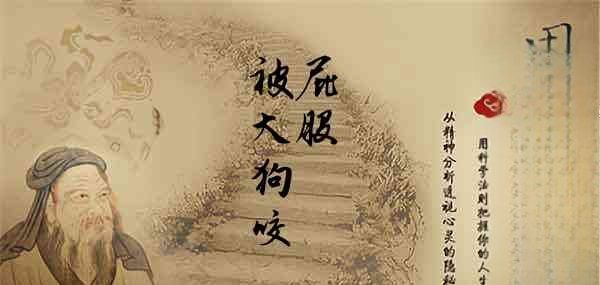 用科学法则把握你的人生
从精神分析透视心灵的隐秘
屁股
被大狗咬